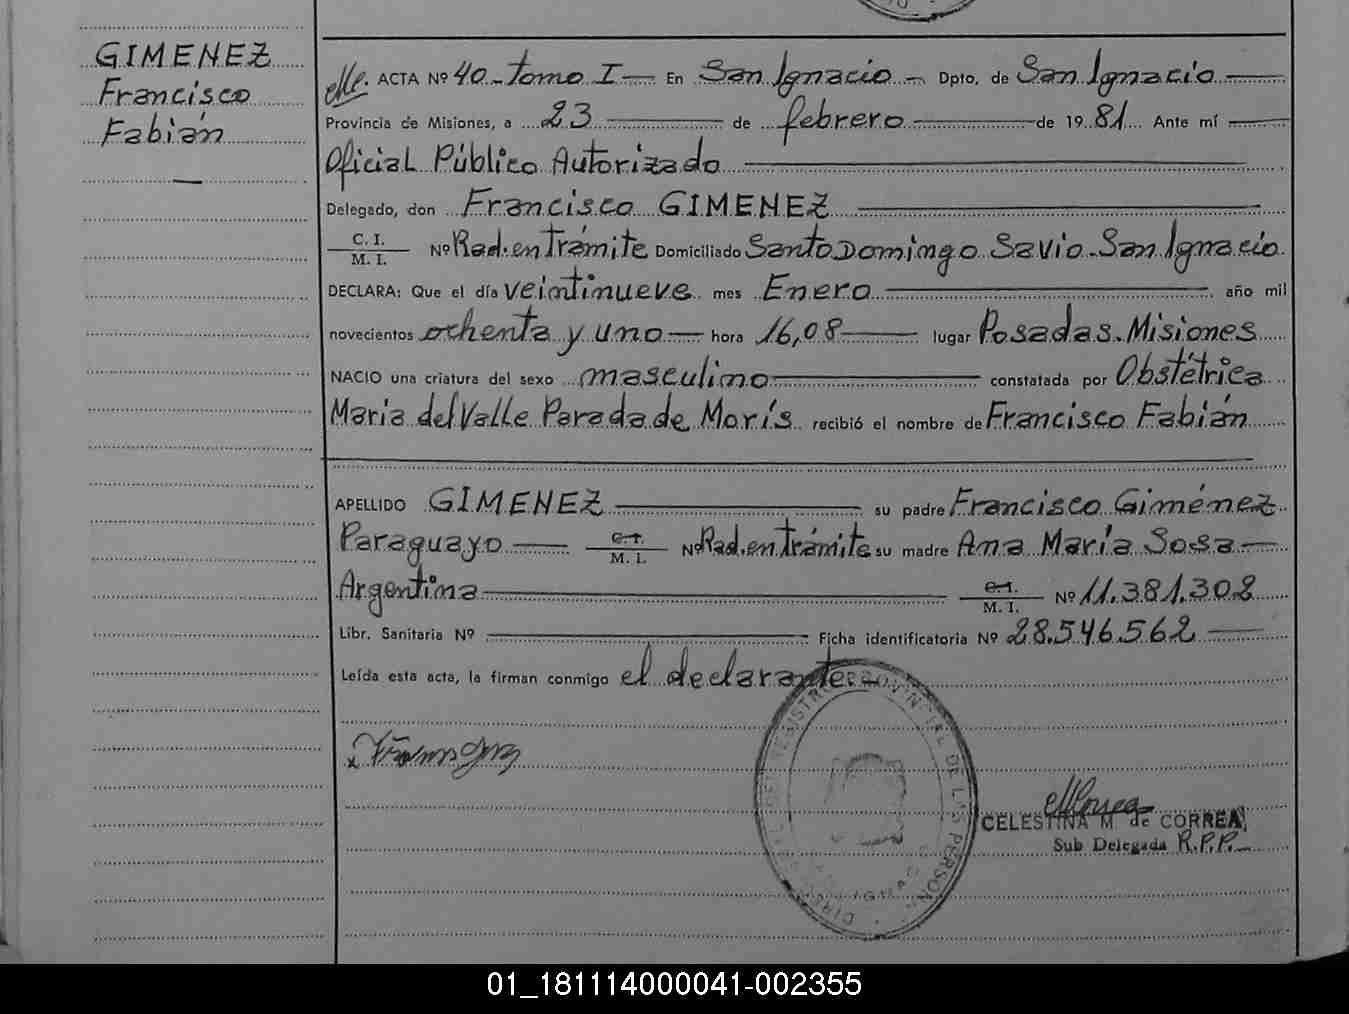 GIMENEZ
Francisco
Fabián
ACTA Nº 40 - tomo I — En San Ignacio - Dpto. de San Ignacio
Provincia de Misiones, a 23 de febrero de 1981 Ante mí
Oficial Público Autorizado
Delegado, don Francisco GIMENEZ
C. I.
M. I.
Nº Rad. en Trámite Domiciliado Santo Domingo Savio - San Ignacio
DECLARA: Que el día veintinueve mes Enero año mil
novecientos ochenta y uno — hora 16,08 lugar Posadas - Misiones
NACIO una criatura del sexo masculino constatada por Obstétrica
Maria del Valle Parada de Morís recibió el nombre de Francisco Fabián
APELLIDO GIMENEZ su padre Francisco Giménez
Paraguayo — C.I. M. I. Nº Rad. en trámite su madre Ana María Sosa —
Argentina C.I. M. I. Nº 11.381.302
Libr. Sanitaria Nº Ficha identificatoria Nº 28.546.562
Leída esta acta, la firman conmigo el declarante -
REGISTRO PROVINCIAL DE LAS PERSONAS
CELESTINA M de CORREA
Sub Delegada R.P.P.
01_181114000041-002355